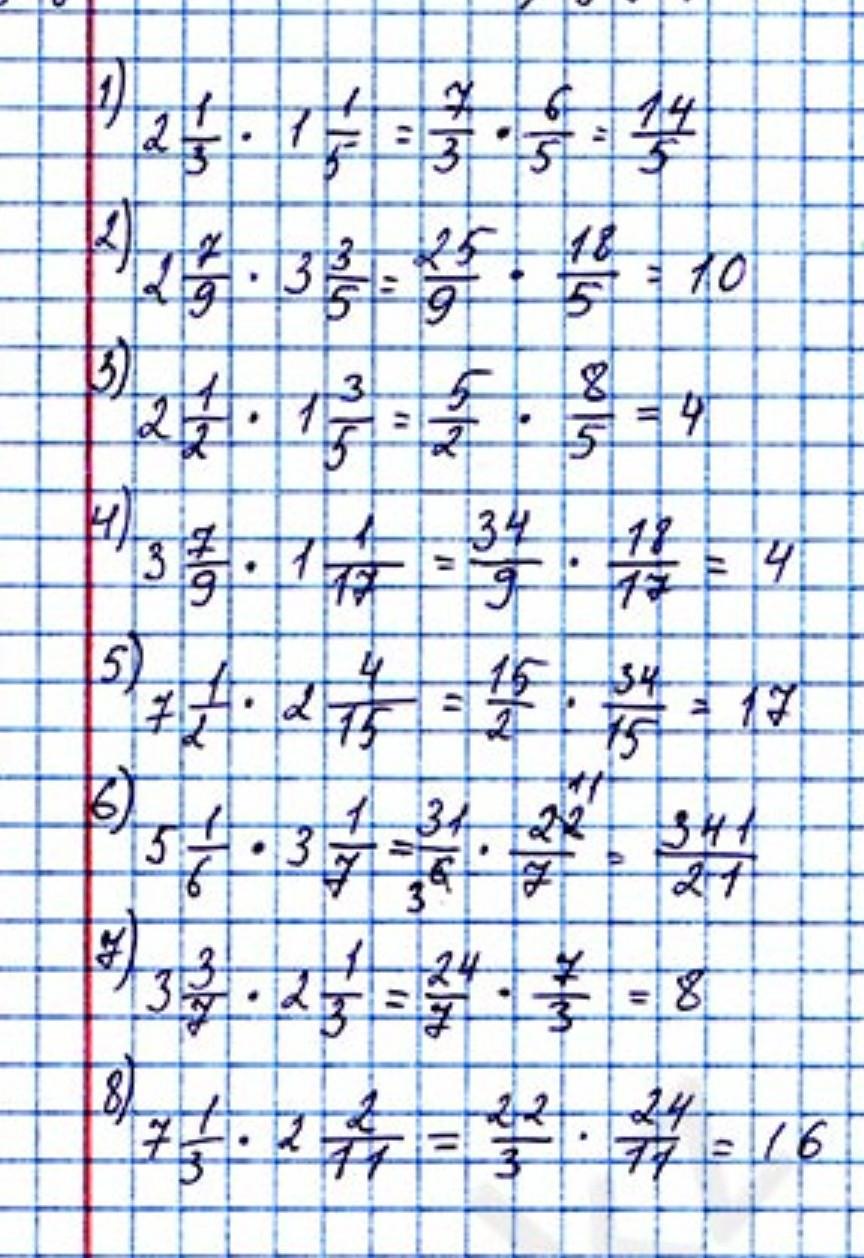 1) 2 1/3 · 1 1/5 = 7/3 · 6/5 = 14/5
2) 2 7/9 · 3 3/5 = 25/9 · 18/5 = 10
3) 2 1/2 · 1 3/5 = 5/2 · 8/5 = 4
4) 3 7/9 · 1 1/17 = 34/9 · 18/17 = 4
5) 7 1/2 · 2 4/15 = 15/2 · 34/15 = 17
6) 5 1/6 · 3 1/7 = 31/6 3 · 22/7 11 = 341/21
7) 3 3/7 · 2 1/3 = 24/7 · 7/3 = 8
8) 7 1/3 · 2 2/11 = 22/3 · 24/11 = 16